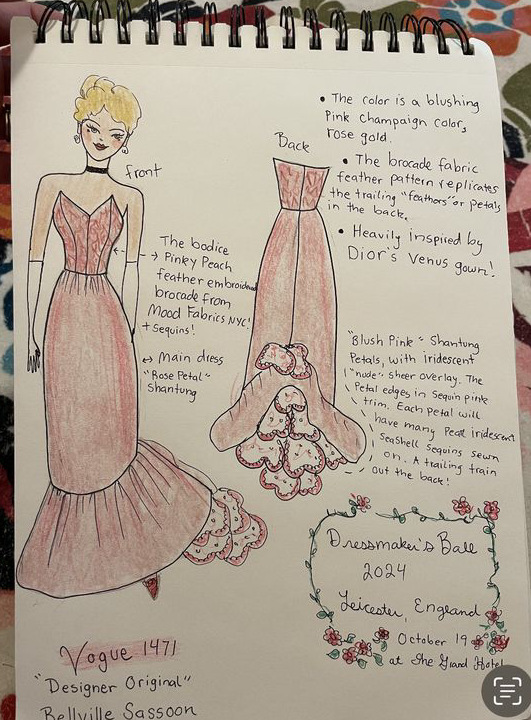 • The color is a blushing
Pink champaign color,
rose gold.
Back
• The brocade fabric
feather pattern replicates
the trailing "feathers" or petals
in the back.
• Heavily inspired by
Dior's Venus gown!
front
The bodice
Pinky Peach
feather embroidered
brocade from
Mood Fabrics NYC!
+ Sequins!
Main dress
"Rose Petal"
Shantung
"Blush Pink" Shantung
Petals, with iridescent
"nude" sheer overlay. The
Petal edges in Sequin pink
trim. Each Petal will
have many Pearl iridescent
Seashell Sequins sewn
on. A trailing train
out the back!
Dressmaker's Ball
2024
Leicester, England
October 19
at The Grand Hotel
Vogue 1471
"Designer Original"
Bellville Sassoon